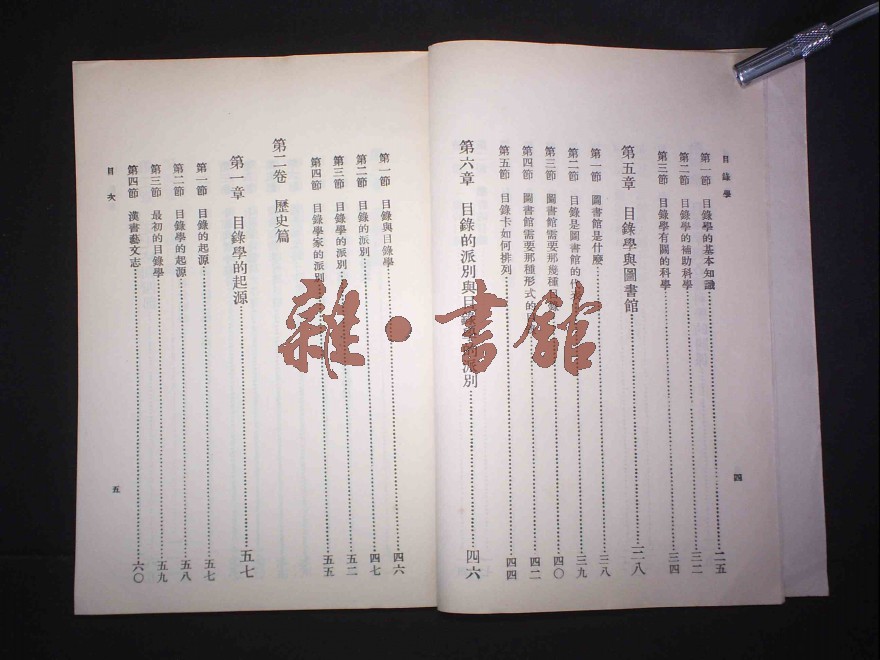 目錄學
第一節 目錄學的基本知識……二五
第二節 目錄學的補助科學……三二
第三節 目錄學有關的科學……三四
第五章 目錄學與圖書館……三八
第一節 圖書館是什麼……三八
第二節 目錄是圖書館的……三九
第三節 圖書館需要那幾種……四〇
第四節 圖書館需要那種形式的……四二
第五節 目錄卡如何排列……四四
第六章 目錄的派別與目錄學的派別……四六
四
第一節 目錄與目錄學……四六
第二節 目錄的派別……四七
第三節 目錄學的派別……五二
第四節 目錄學家的派別……五五
第二卷 歷史篇
第一章 目錄學的起源……五七
第一節 目錄的起源……五七
第二節 目錄學的起源……五八
第三節 最初的目錄學……五九
第四節 漢書藝文志……六〇
目次
五
雜·書館